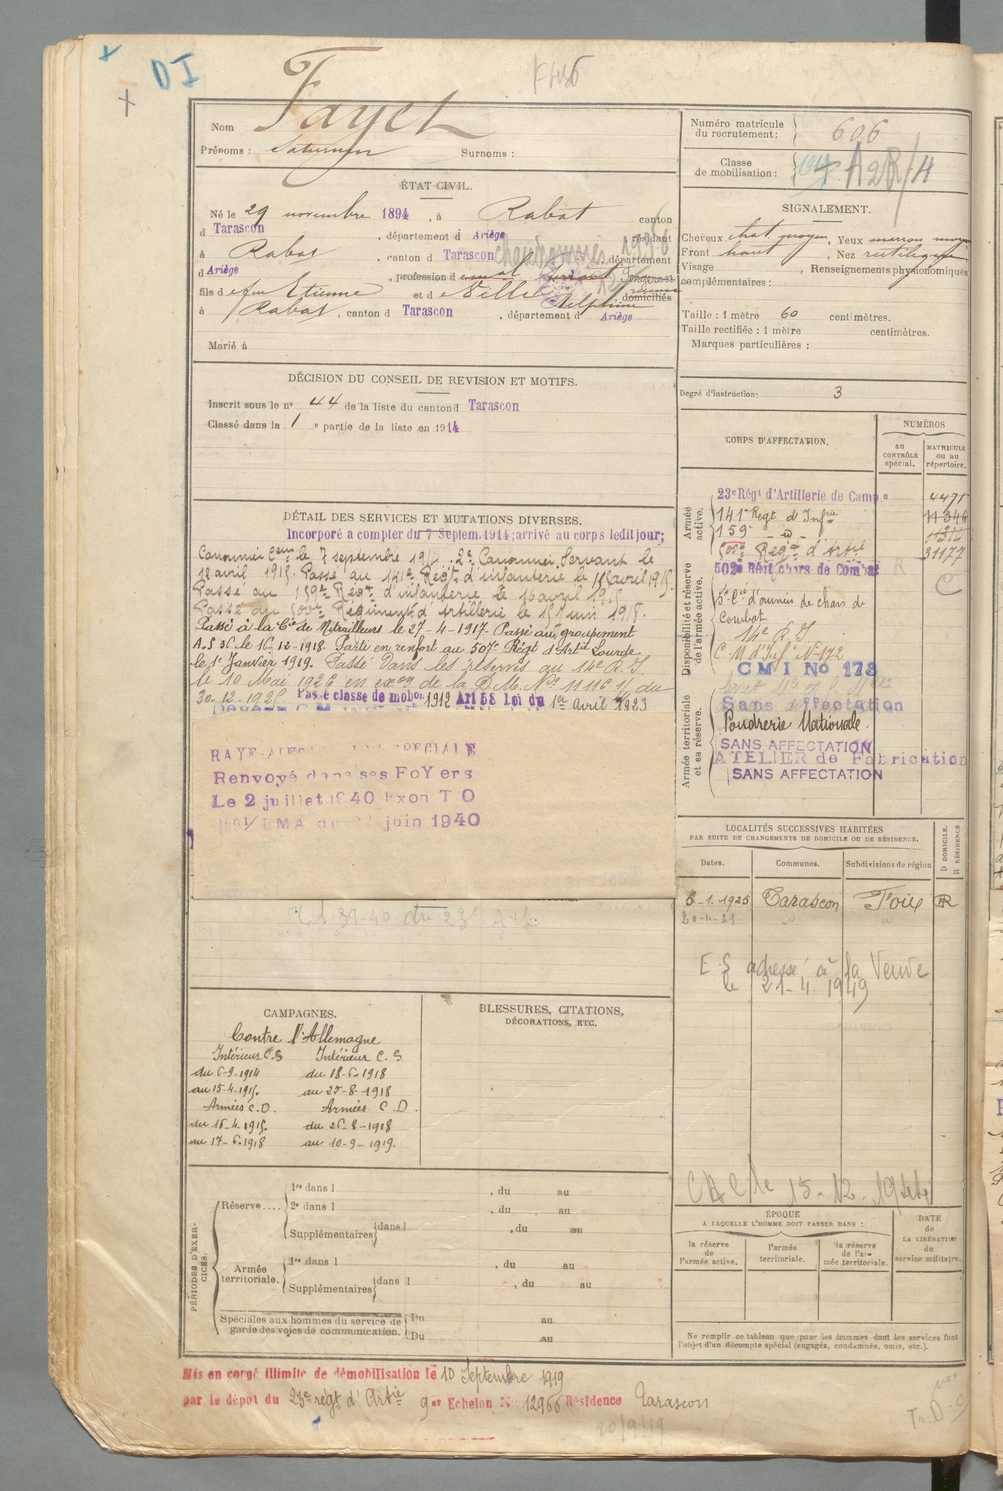 DI
Nom Fayet
Prénoms : Saturnin Surnoms :
ÉTAT CIVIL.
Né le 29 novembre 1894, à Rabat canton
d Tarascon, département d Ariège, résidant
à Rabat, canton d Tarascon, département
d Ariège, profession d
fils d Etienne et d domiciliés
à Rabat, canton d Tarascon, département d Ariège
Marié à
DÉCISION DU CONSEIL DE REVISION ET MOTIFS.
Inscrit sous le n° 44 de la liste du canton d Tarascon
Classé dans la 1e partie de la liste en 1914
DÉTAIL DES SERVICES ET MUTATIONS DIVERSES.
Incorporé a compter du 7 Septem. 1914; arrivé au corps ledit jour;
le 7 septembre 1914. 2e Canonnier Servant le
12 avril 1915. Passé au 141e Régt d'infanterie le avril 1915.
Passé au 159e Régt d'infanterie le 16 avril 1915
Passé au 500e Régiment d'Artillerie le 18 juin 1918.
Passé à la Cie de Mitrailleurs le 27-4-1917. Passé au groupement
A.S 36 le 16.12-1918. Parti en renfort au 507e Régt d'Artie Lourde
le 1er Janvier 1919. Passé dans les réserves au 14e R.I.
le 10 Mai 1926 en exon de la D.M. No 1111C 1/ du
30-12-1925 Passé classe de mobon 1912 Art 58 Loi du 1er Avril 1923
Renvoyé dans ses FoYers
Le 2 juillet 1940 Exon T O
/EMA du juin 1940
CAMPAGNES.
Contre l'Allemagne
Intérieur C.S Intérieur C.S
du 6-9-1914 du 18-6-1918
au 15-4-1915. au 25-8-1918
Armées C.D. Armées C.D.
du 16-4-1915. du 26-8-1918
au 17-6-1918 au 10-9-1919.
BLESSURES, CITATIONS,
DÉCORATIONS, ETC.
PÉRIODES D'EXERCICES.
Réserve.... 1re dans l , du au
2e dans l , du au
Supplémentaires dans l , du au
Armée territoriale. 1re dans l , du au
Supplémentaires dans l , du au
Spéciales aux hommes du service de Du au
garde des voies de communication. Du au
Mis en congé illimité de démobilisation le 10 Septembre 1919
par le dépôt du 23e régt d'Artie 9er Echelon N° 12966 Résidence Tarascon
20/9/19
Numéro matricule
du recrutement: 606
Classe
de mobilisation:
SIGNALEMENT.
Cheveux chat moyen, Yeux marron moyen
Front haut, Nez rectiligne
Visage Renseignements physionomiques
complémentaires:
Taille : 1 mètre 60 centimètres.
Taille rectifiée : 1 mètre centimètres.
Marques particulières :
Degré d'instruction: 3
CORPS D'AFFECTATION.
NUMÉROS
AU CONTRÔLE spécial.
MATRICULE OU AU répertoire.
Armée active.
23e Régt d'Artillerie de Camp.e 4471
141e Regt d'Infie 11346
159e -d-
500e Régt d'Artie 31177
502e Régt chars de Combat
Disponibilité et réserve de l'armée active.
Combat
14e R.I
C.M d'Infie N° 172
C M I No 178
Armée territoriale et sa réserve.
Sans affectation
Poudrerie Nationale.
SANS AFFECTATION
ATELIER de Fabrication
SANS AFFECTATION
LOCALITÉS SUCCESSIVES HABITÉES
PAR SUITE DE CHANGEMENTS DE DOMICILE OU DE RÉSIDENCE.
D DOMICILE.
R RÉSIDENCE
Dates. Communes. Subdivisions de région
6-1.1925 Tarascon Foix R
20-4-29 " "
E S adressé à la Veuve
le 21-4.1949
ÉPOQUE
A LAQUELLE L'HOMME DOIT PASSER DANS :
la réserve de l'armée active.
l'armée territoriale.
la réserve de l'armée territoriale.
DATE de LA LIBÉRATION du service militaire.
Ne remplir ce tableau que pour les hommes dont les services font
l'objet d'un décompte spécial (engagés, condamnés, omis, etc.).